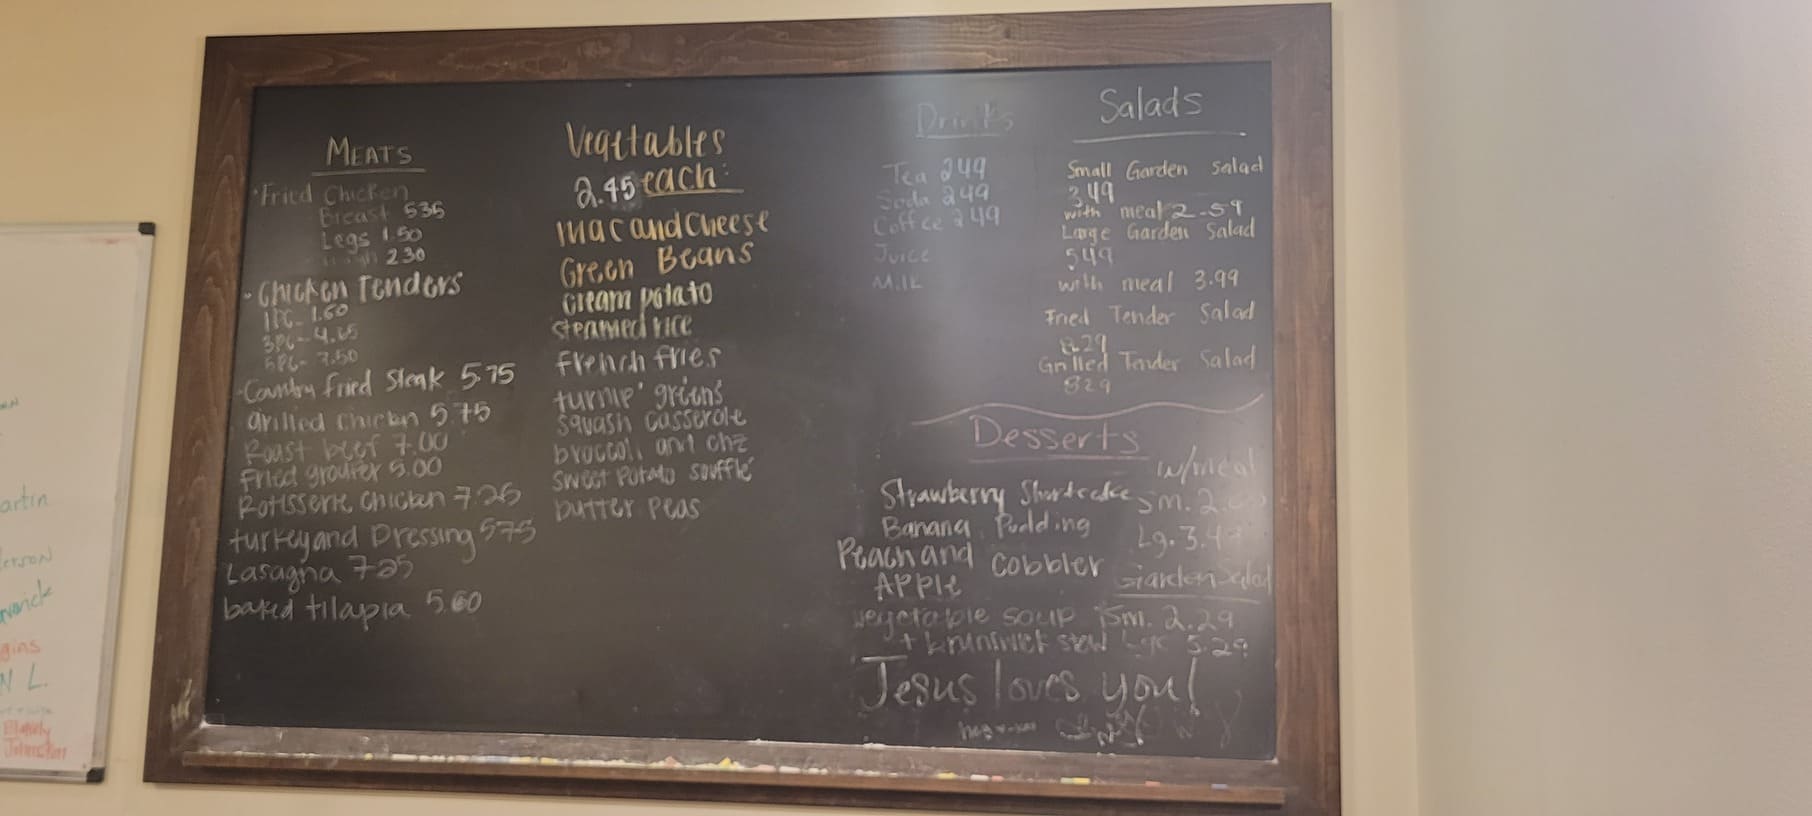 MEATS
• Fried Chicken
Breast 535
Legs 1.50
230
- Chicken Tenders
1PC- 1.60
3PC- 4.65
5PC- 7.50
- Country fried Steak 5.75
grilled chicken 5.75
Roast beef 7.00
fried grouper 5.00
Rotisserie chicken 7.25
turkey and Dressing 575
Lasagna 725
baked tilapia 5.60
Vegetables
2.45 each:
mac and cheese
Green Beans
cream potato
steamed rice
french fries
turnip greens
squash casserole
broccoli and chz
sweet potato soufflé
butter peas
Drinks
Tea 249
Soda 249
Coffee 249
Juice
Milk
Salads
Small Garden Salad
349
with meal 2.59
Large Garden Salad
549
with meal 3.99
Fried Tender Salad
8.29
Grilled Tender Salad
829
Desserts
w/meal
Strawberry Shortcake sm. 2.
Banana Pudding Lg. 3.4
Peach and Cobbler
APPle
Garden Salad
vegetable soup sm. 2.29
+ brunswick stew Lge 5.29
Jesus loves you!
artin
erson
gins
N L.
Blakely
Johnston